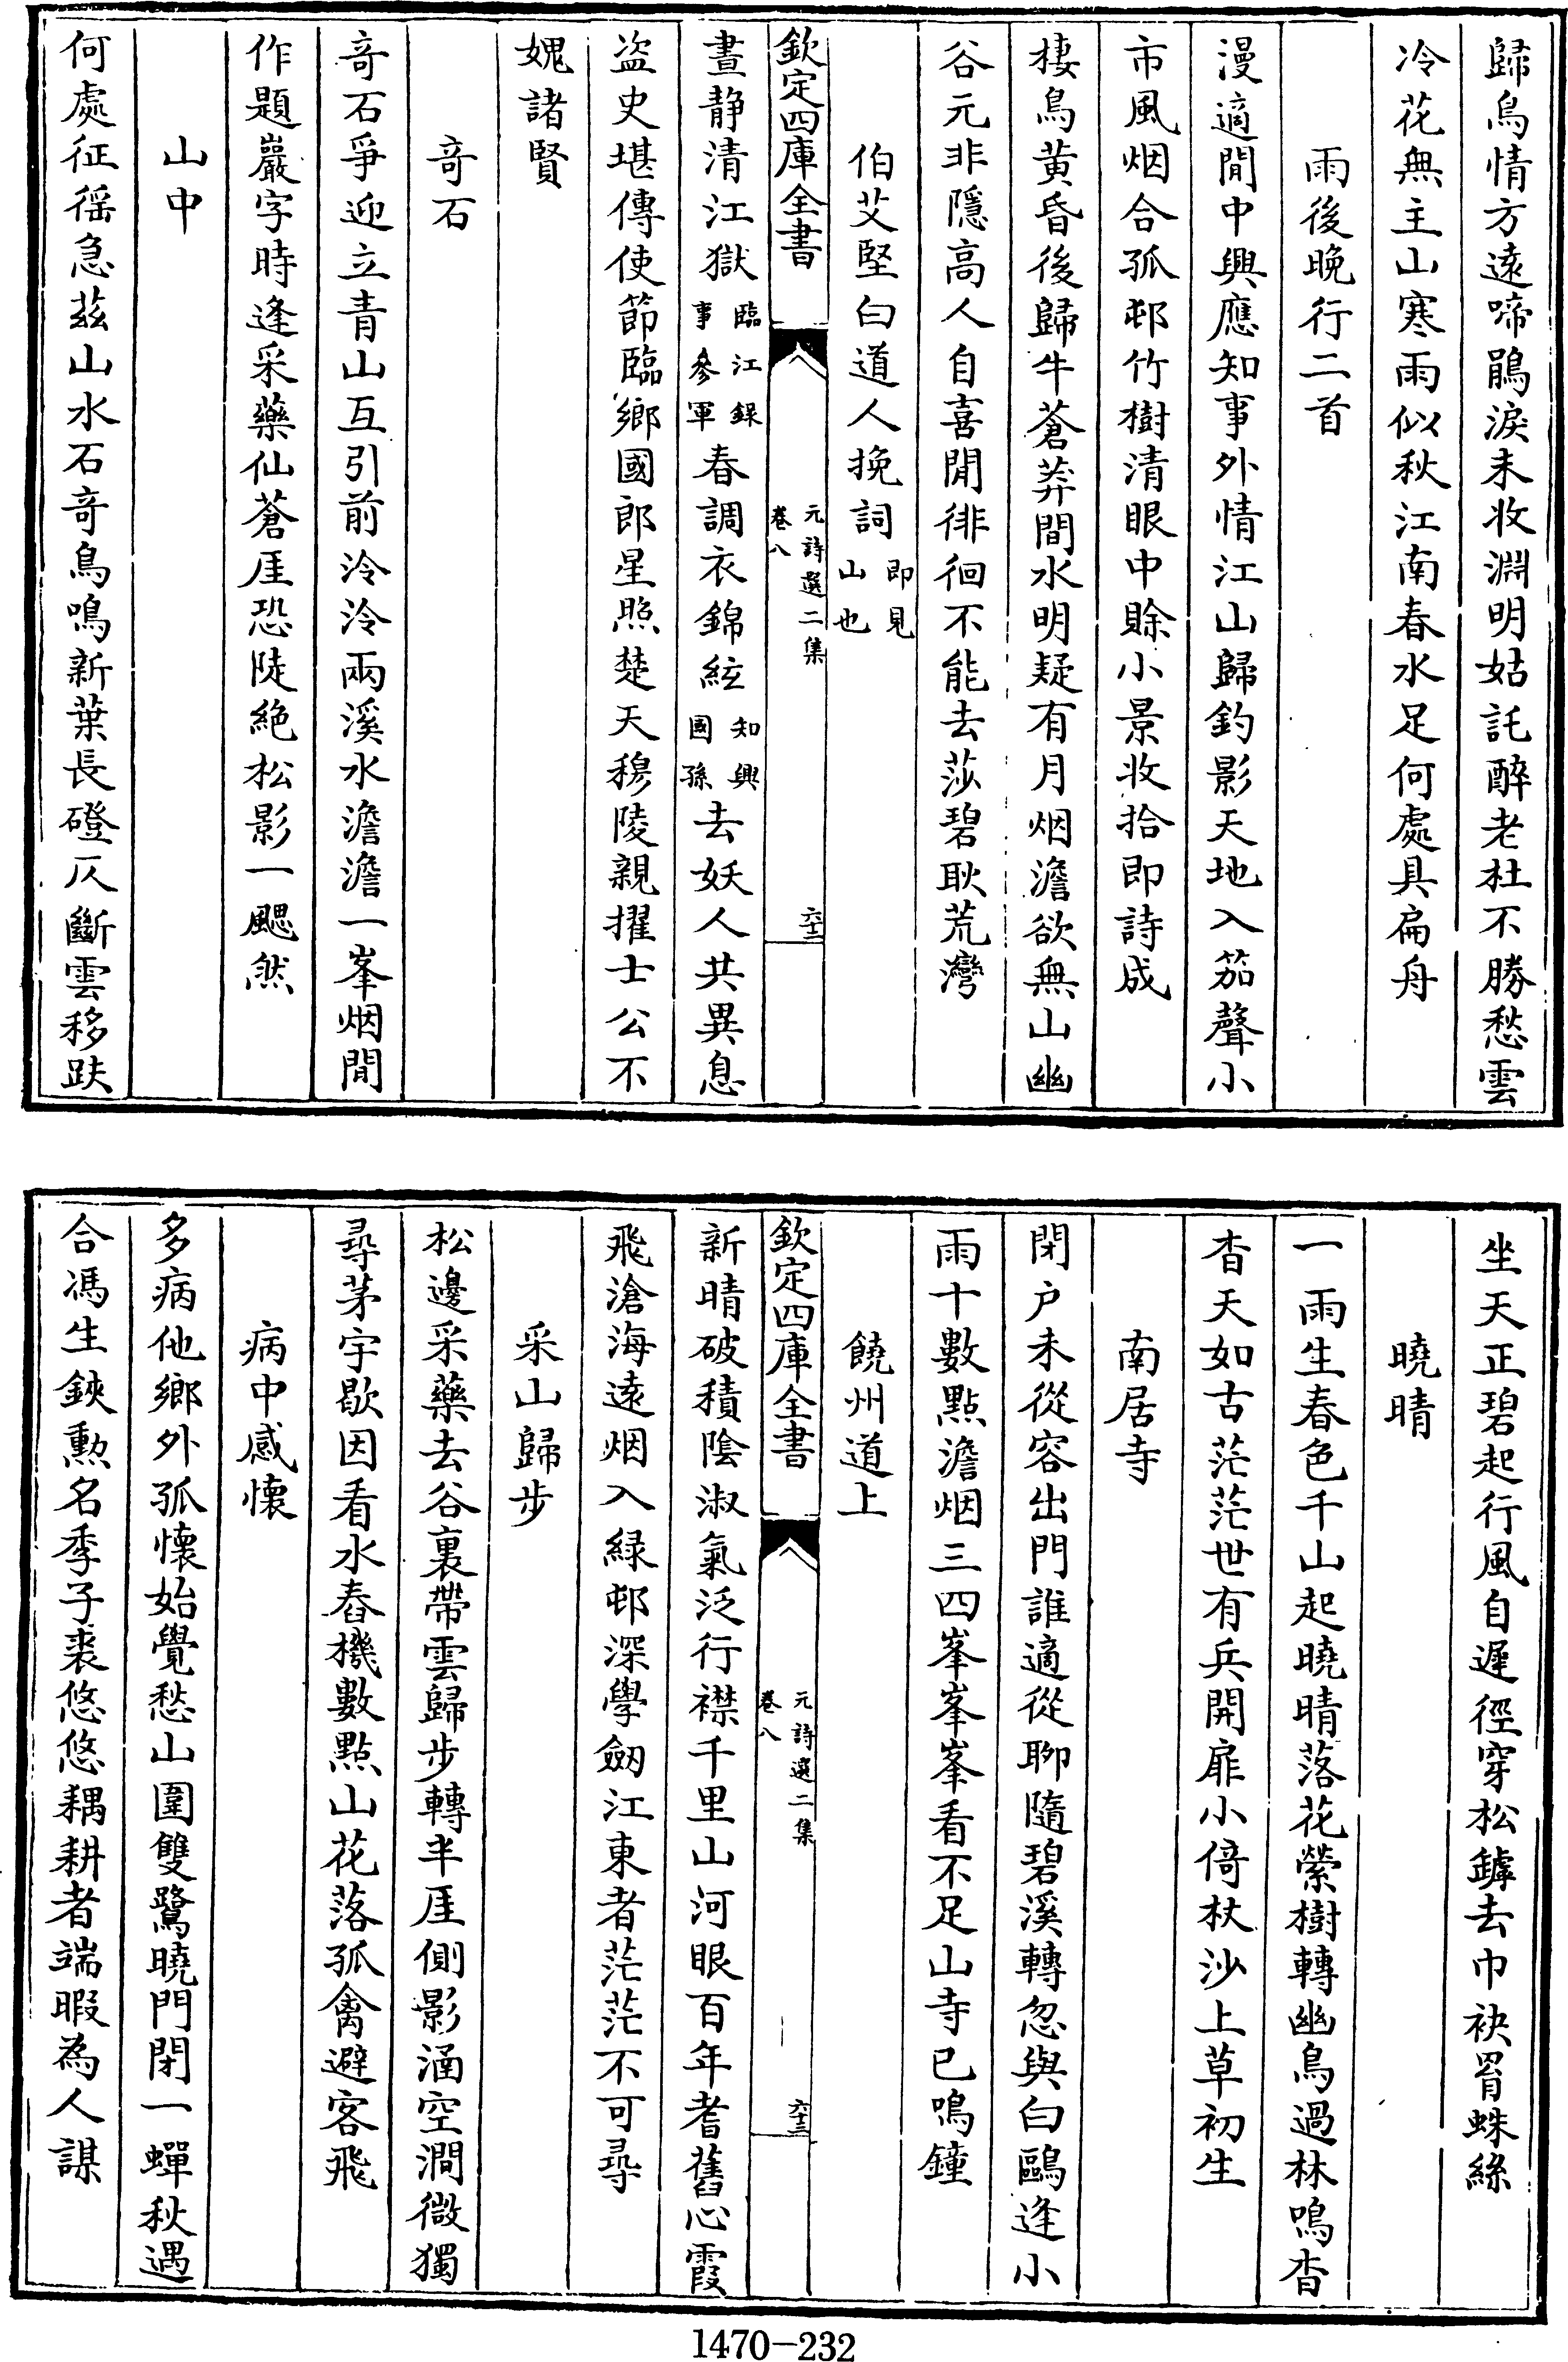 歸鳥情方遠啼鵑淚未收淵明姑託醉老杜不勝愁雲
冷花無主山寒雨似秋江南春水足何處具扁舟
雨後晚行二首
漫適閒中興應知事外情江山歸釣影天地入笳聲小
市風烟合孤邨竹樹清眼中賖小景收拾即詩成
棲鳥黄昏後歸牛蒼莽間水明疑有月烟澹欲無山幽
谷元非隱高人自喜閒徘徊不能去莎碧耿荒灣
伯艾堅白道人挽詞即見山也
欽定四庫全書 元詩選二集 卷八 六十二
晝静清江獄臨江録事參軍春調衣錦絃知興國孫去妖人共異息
盗史堪傳使節臨鄉國郎星照楚天穆陵親擢士公不
媿諸賢
奇石
奇石爭迎立青山互引前泠泠兩溪水澹澹一峯烟閒
作題巖字時逢采藥仙蒼厓恐陡絶松影一颸然
山中
何處征徭急兹山水石奇鳥鳴新葉長磴仄斷雲移趺
坐天正碧起行風自遲徑穿松罅去巾袂罥蛛絲
曉晴
一雨生春色千山起曉晴落花縈樹轉幽鳥過林鳴杳
杳天如古茫茫世有兵開扉小倚杖沙上草初生
南居寺
閉户未從容出門誰適從聊隨碧溪轉忽與白鷗逢小
雨十數點澹烟三四峯峯峯看不足山寺已鳴鐘
饒州道上
欽定四庫全書 元詩選二集 卷八 六十三
新晴破積陰淑氣泛行襟千里山河眼百年耆舊心霞
飛滄海遠烟入緑邨深學劒江東者茫茫不可尋
采山歸步
松邊采藥去谷裏帶雲歸步轉半厓側影涵空澗微獨
尋茅宇歇因看水舂機數點山花落孤禽避客飛
病中感懷
多病他鄉外孤懷始覺愁山圍雙鷺曉門閉一蟬秋遇
合馮生鋏勲名季子裘悠悠耦耕者端暇為人謀
1470-232